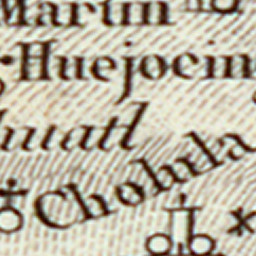 Martin
Huejocin
huatl
Cholula